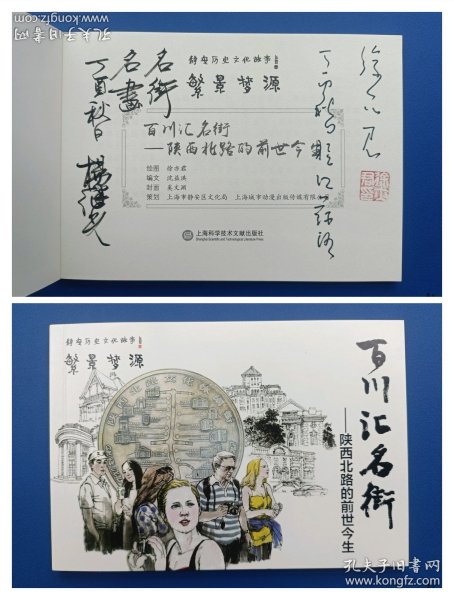 孔夫子旧书网
www.kongfz.com
静安历史文化故事
繁景梦源
名街
名画
丁酉秋日
百川汇名街
——陕西北路的前世今生
绘图 徐亦君
编文 沈益洪
封面 吴文渊
策划 上海市静安区文化局 上海城市动漫出版传媒有限公司
上海科学技术文献出版社
Shanghai Scientific and Technological Literature Press
徐亦君
静安历史文化故事
繁景梦源
百川汇名街
——陕西北路的前世今生
孔夫子旧书网
www.kongfz.com